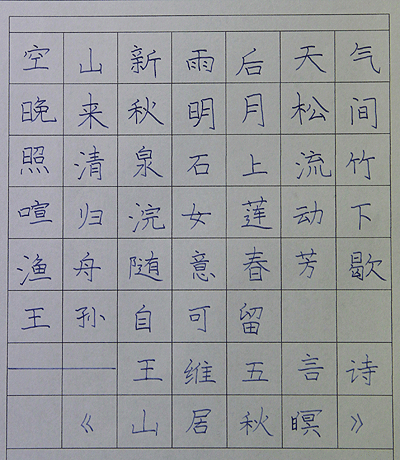 空山新雨后天气
晚来秋明月松间
照清泉石上流竹
喧归浣女莲动下
渔舟随意春芳歇
王孙自可留
——王维五言诗
《山居秋暝》